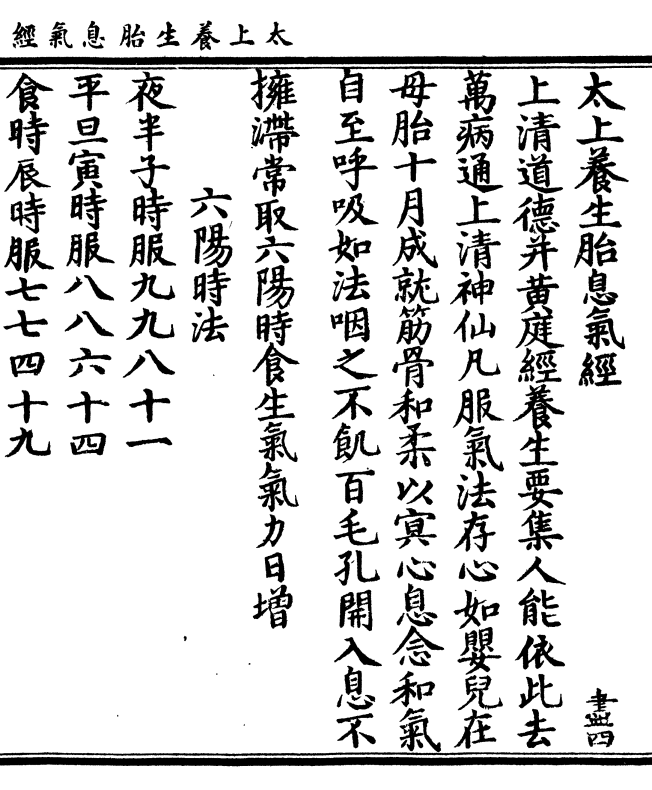 太上養生胎息氣經
太上養生胎息氣經
盡四
上清道德并黄庭經養生要集人能依此去
萬病通上清神仙凡服氣法存心如嬰兒在
母胎十月成就筋骨和柔以㝠心息念和氣
自至呼吸如法咽之不飢百毛孔開入息不
擁滯常取六陽時食生氣氣力日增
六陽時法
夜半子時服九九八十一
平旦寅時服八八六十四
食時辰時服七七四十九